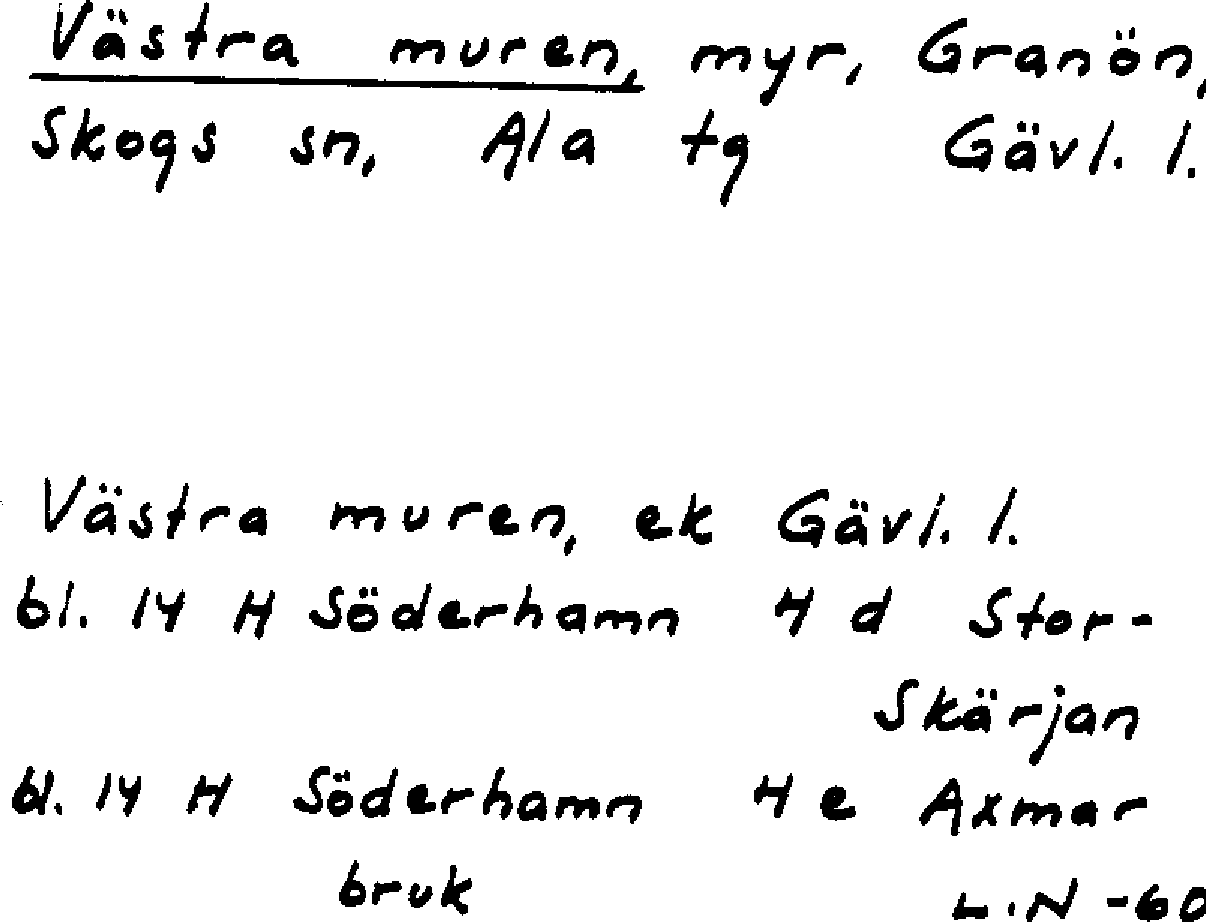 Västra muren, myr, Granön,
Skogs sn, Ala tg Gävl. l.
Västra muren, ek Gävl. l.
bl. 14 H Söderhamn 4 d Stor-
Skärjan
bl. 14 H Söderhamn 4 e Axmar
bruk L.N -60